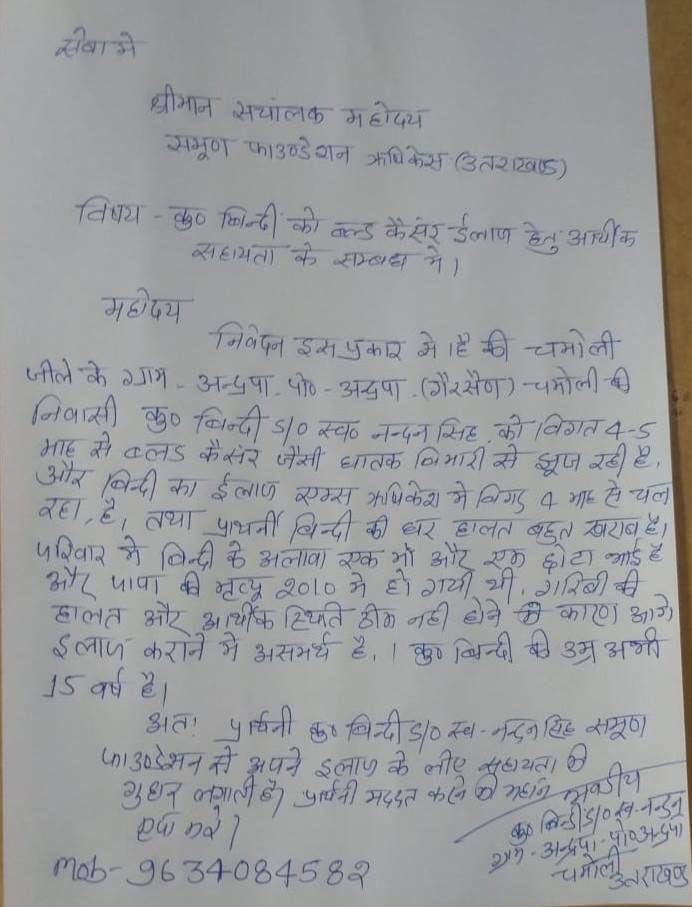 सेवा मे
श्रीमान सचांलक महोदय
समूण फाउण्डेशन ऋषिकेस (उतराखण्ड)
विषय - कु० बिन्दी को ब्लड कैसंर ईलाज हेतु आर्थीक
सहायता के सम्बध मे।
महोदय
निवेदन इस प्रकार मे है की चमोली
जीले के ग्राम - अन्द्रपा. पो० - अन्द्रपा. (गैरसैण) चमोली की
निवासी कु० बिन्दी D/O स्व० नन्दन सिह, को विगत 4-5
माह से ब्लड कैसंर जैसी घातक बिमारी से झूज रही है,
और बिन्दी का ईलाज एम्स ऋषिकेश मे विगत 4 माह से चल
रहा, है, तथा प्राथर्नी बिन्दी की घर हालत बहुत खराब है।
परिवार मे बिन्दी के अलावा एक माँ और एक छोटा भाई है
और पापा की मृत्यू 2010 मे हो गयी थी, गरिबी की
हालत और आर्थीक स्थिति ठीक नही होने के कारण आगे
ईलाज कराने मे असमर्थ है, । कु० बिन्दी की उम्र अभी
15 वर्ष है।
अतः प्रार्थिनी कु० बिन्दी D/O स्व - नन्दन सिह समूण
फाउण्डेशन से अपने इलाज के लीए सहायता की
गुहार लगाती है। प्रार्थनी मददत करने की महान
कृपा करे।
भवदीय
कु० बिन्दी D/O स्व. नन्दन
ग्राम - अन्द्रपा - पो० अन्द्रपा
चमोली उतराखण्ड
mob- 9634084582